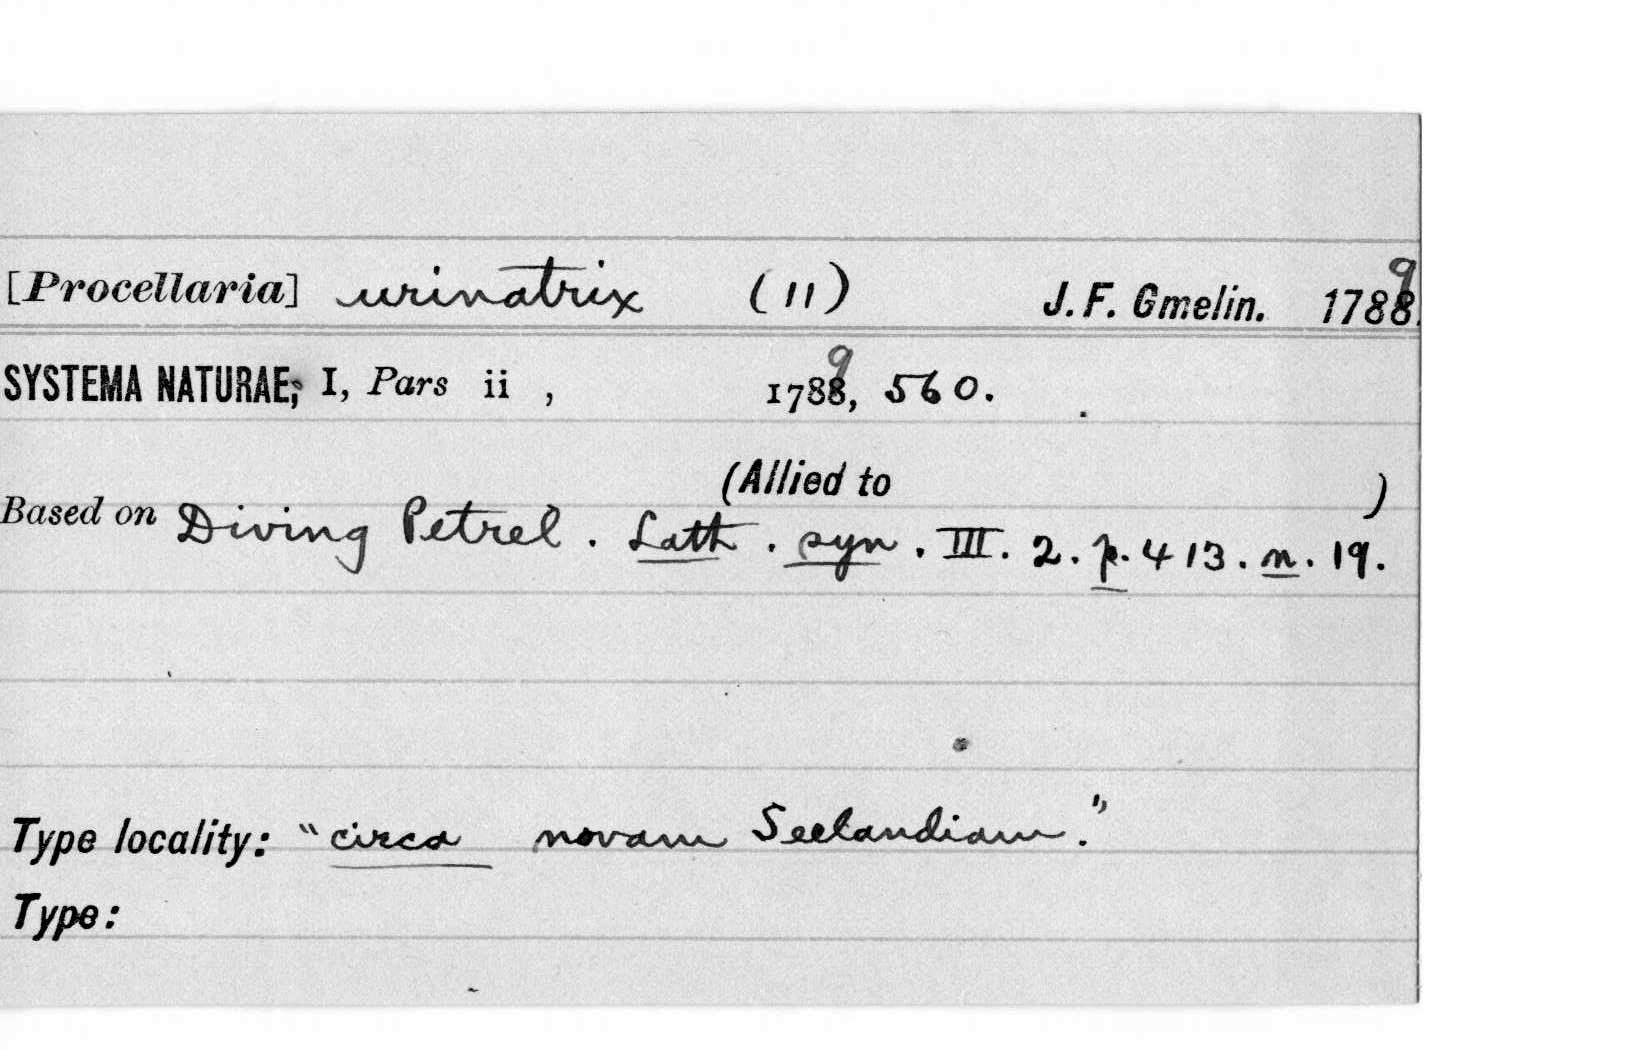 [Procellaria] urinatrix (11) J. F. Gmelin. 17889.
SYSTEMA NATURAE, I, Pars ii , 17889, 560.
(Allied to )
Based on Diving Petrel. Lath. syn. III. 2. p. 413. n. 19.
Type locality: "circa novam Seelandiam."
Type: